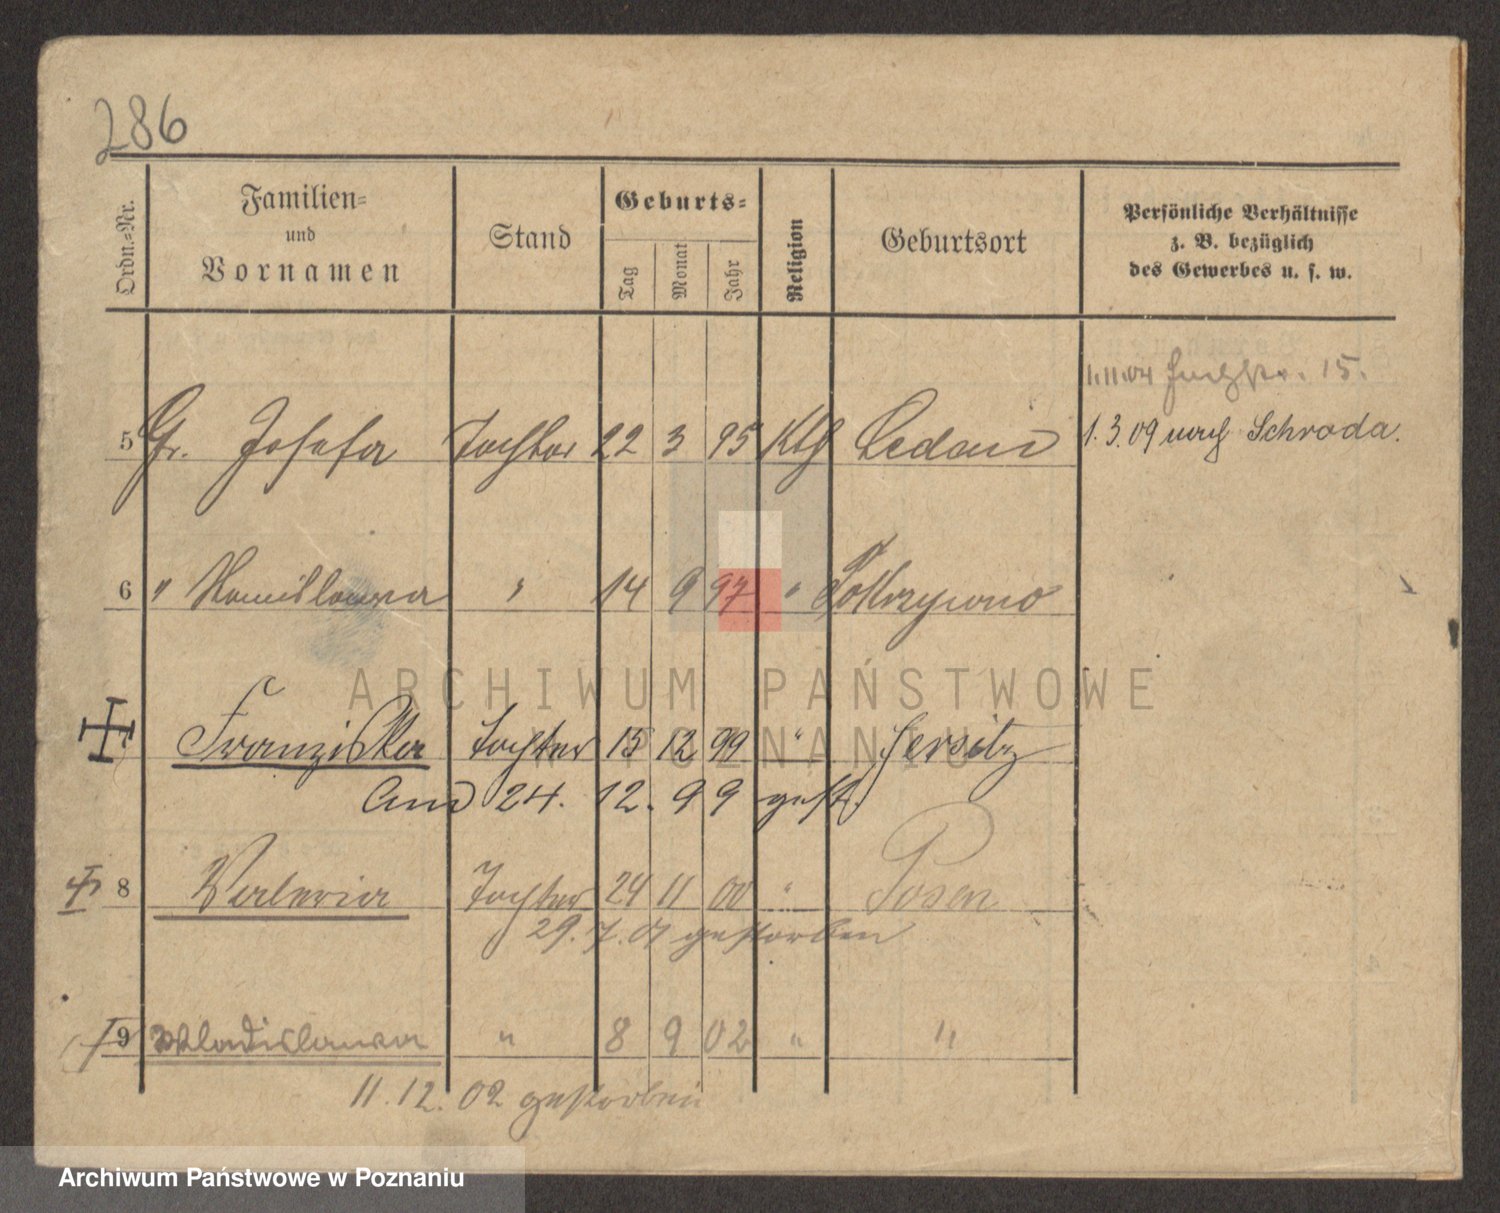 286
Ordn.-Nr.
Familien-
und
Vornamen
Stand
Geburts-
Tag
Monat
Jahr
Religion
Geburtsort
Persönliche Verhältnisse
z. B. bezüglich
des Gewerbes u. s. w.
1.11.04 15.
5 Gr. Josefa Tochter 22 3 95 Kth 1.3.09 nach Schroda.
6 " Stanislawa " 14 9 97 "
ARCHIWUM PAŃSTWOWE
W POZNANIU
Franziska Tochter 15 12 99 " Jersitz
Am 24. 12. 99 gest.
8 Valeria Tochter 24 11 00 " Posen
29.7.01 gestorben
9 Wladislawa " 8 9 02 " "
11.12.02 gestorben
Archiwum Państwowe w Poznaniu